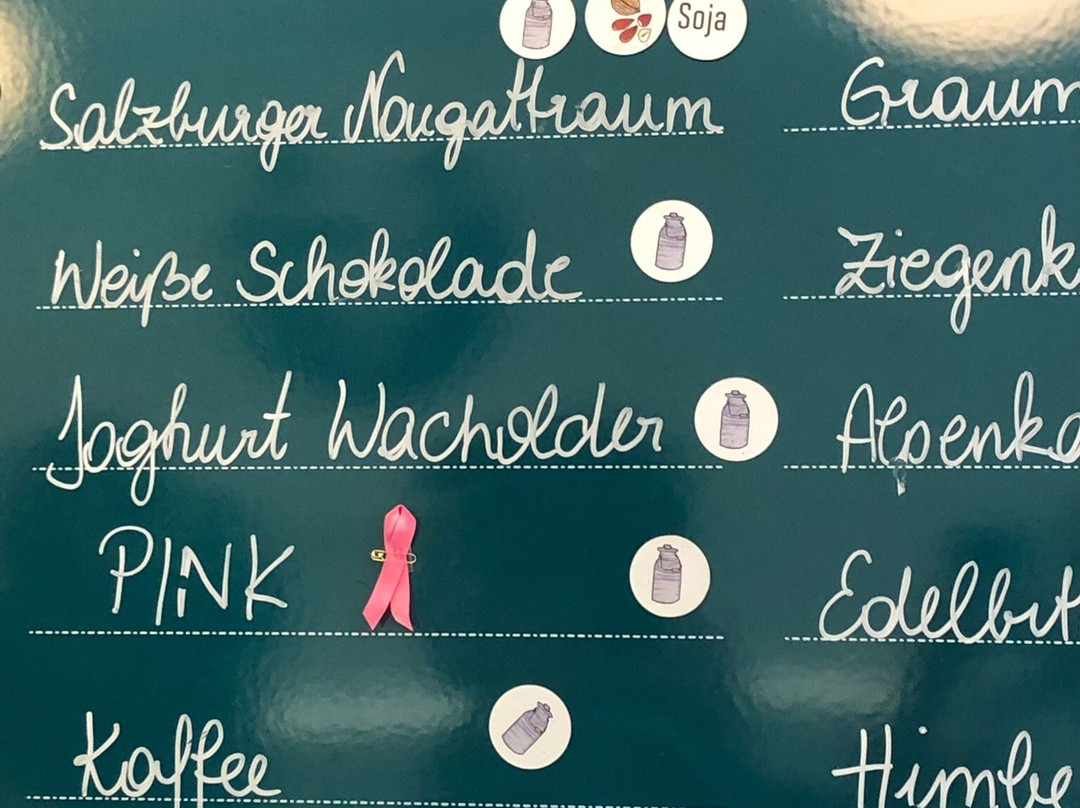 Soja
Salzburger Nougattraum
Weiße Schokolade
Joghurt Wacholder
PINK
Kaffee
Graum
Ziegenk
Alpenka
Edelbit
Himbe